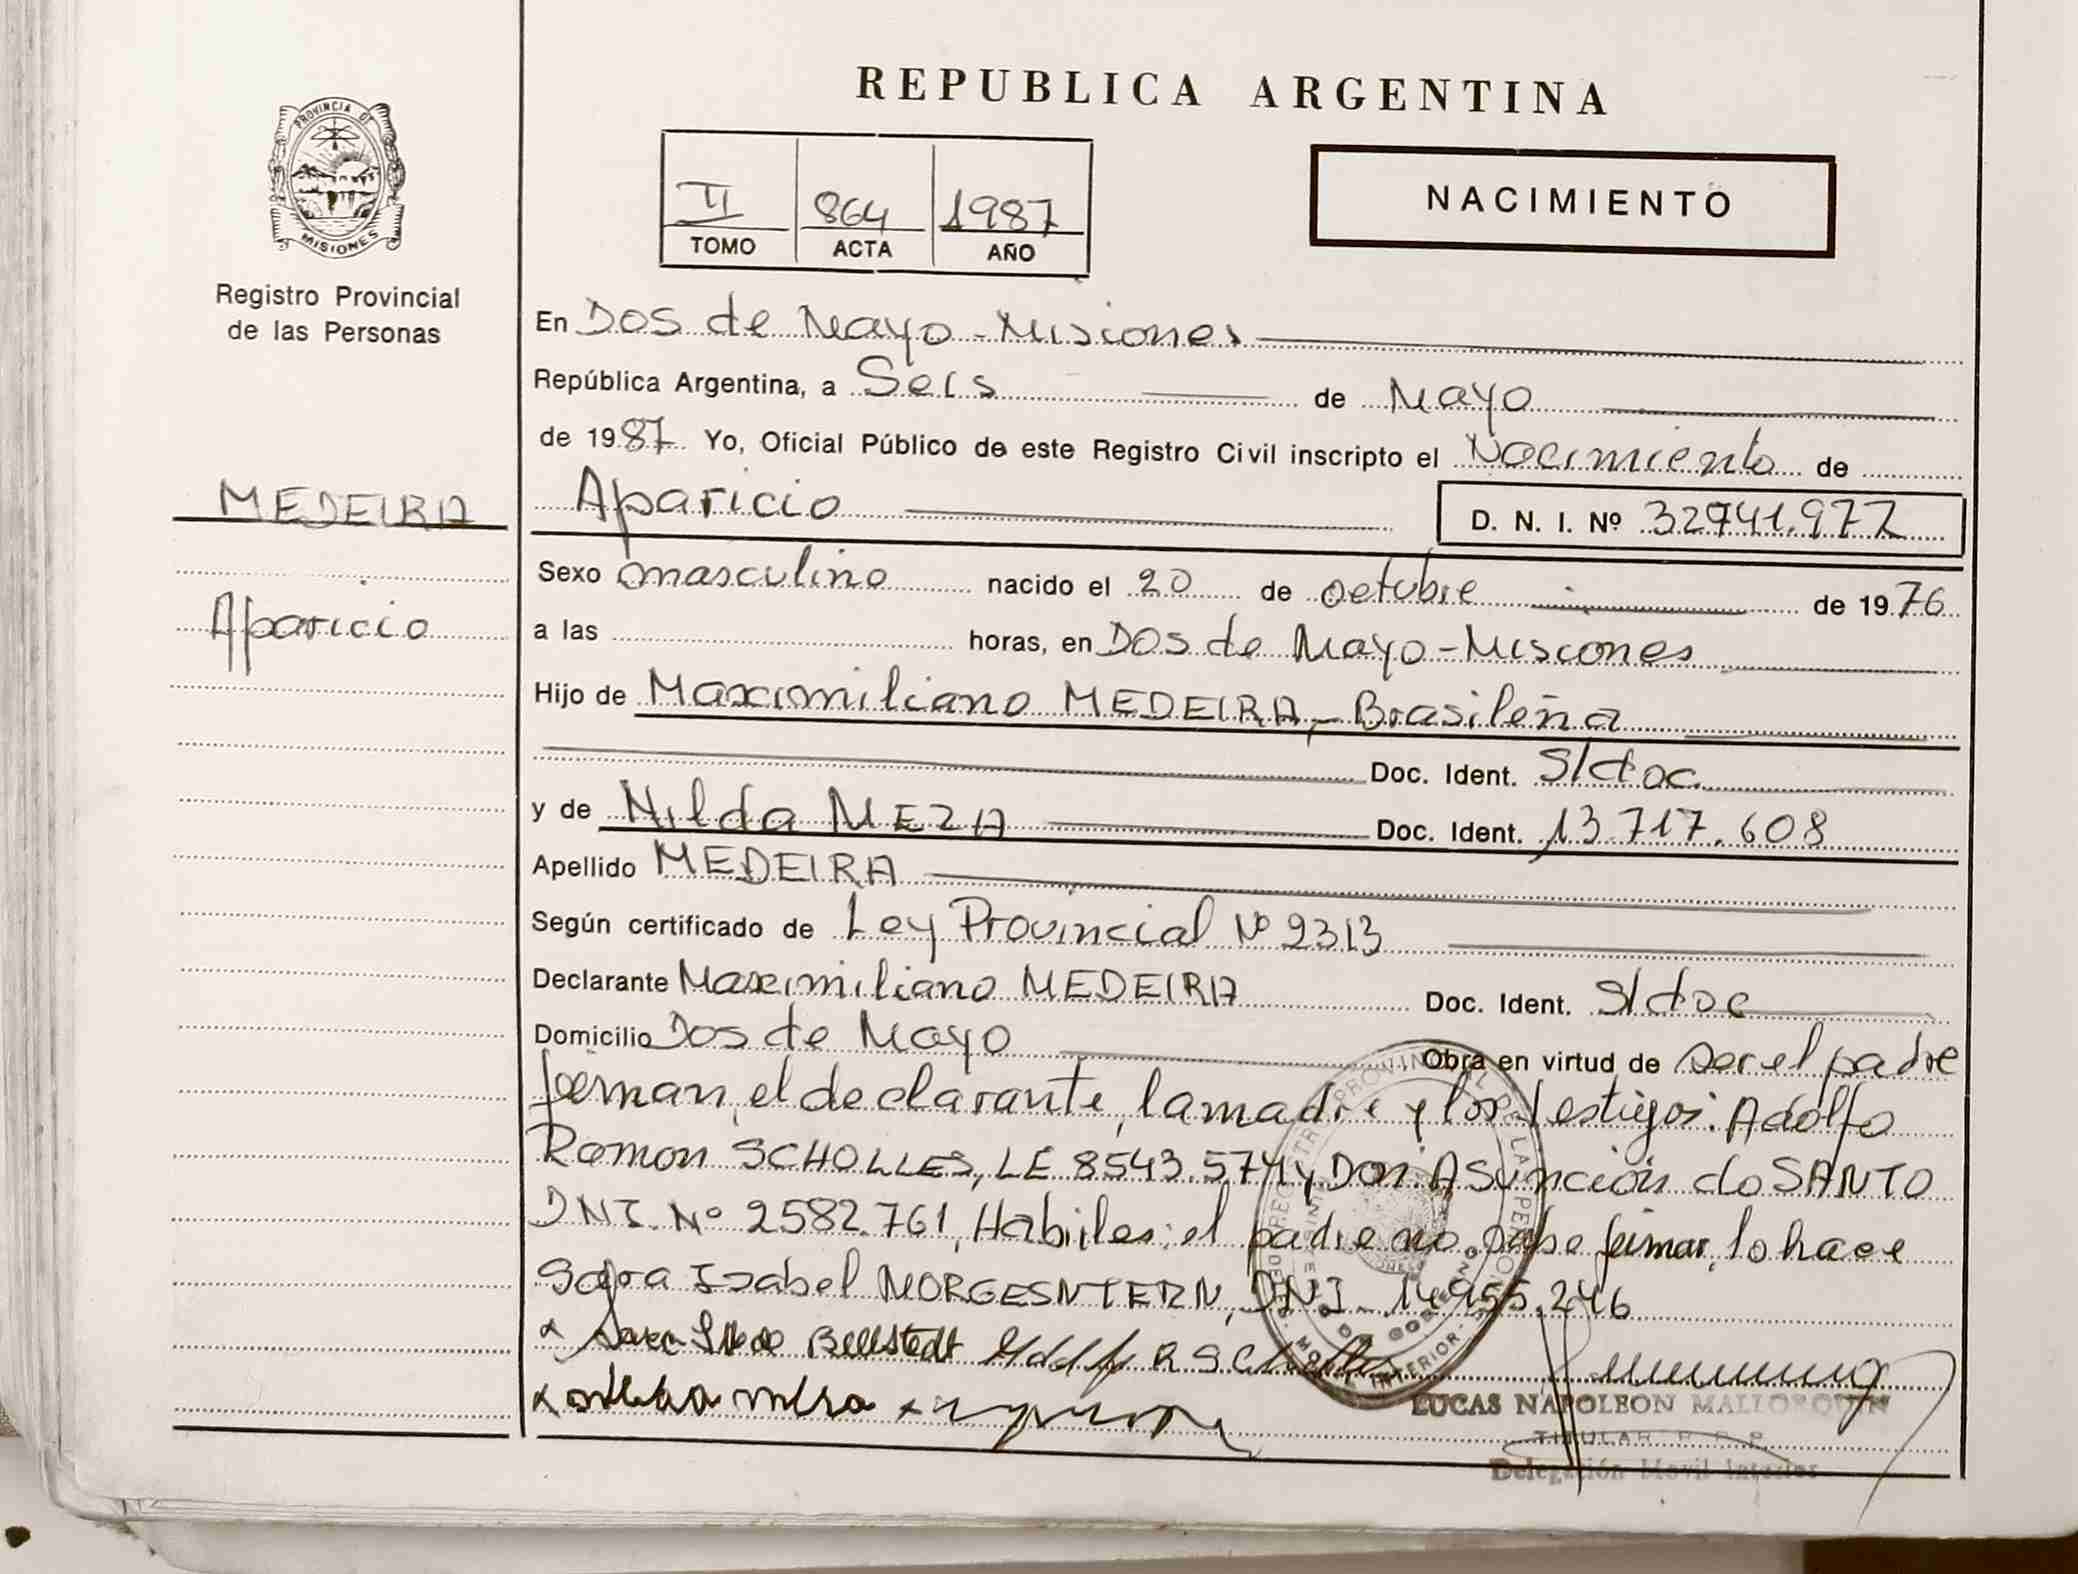 REPUBLICA ARGENTINA
PROVINCIA DE
MISIONES
Registro Provincial
de las Personas
II 864 1987
TOMO ACTA AÑO
NACIMIENTO
En Dos de Mayo - Misiones
República Argentina, a Seis de Mayo
de 1987 Yo, Oficial Público de este Registro Civil inscripto el Nacimiento de
MEDEIRA
Aparicio D. N. I. Nº 32741.977
Sexo masculino nacido el 20 de octubre de 1976
Aparicio
a las horas, en Dos de Mayo - Misiones
Hijo de Maximiliano MEDEIRA, Brasileña
Doc. Ident. S/doc.
y de Nilda MEZA Doc. Ident. 13.717.608
Apellido MEDEIRA
Según certificado de Ley Provincial Nº 2313
Declarante Maximiliano MEDEIRA Doc. Ident. S/doc
Domicilio Dos de Mayo Obra en virtud de ser el padre
firman, el declarante, la madre y los testigos: Adolfo
Ramon SCHOLLES, LE 8543.574 y Don Asunción do SANTO
DNI. Nº 2582.761, Habiles: el padre no sabe firmar, lo hace
Sara Isabel MORGESNTERN, DNI. 14955.246
LUCAS NAPOLEON MALLORQUIN
TITULAR R. P. P.
Delegación Movil Interior